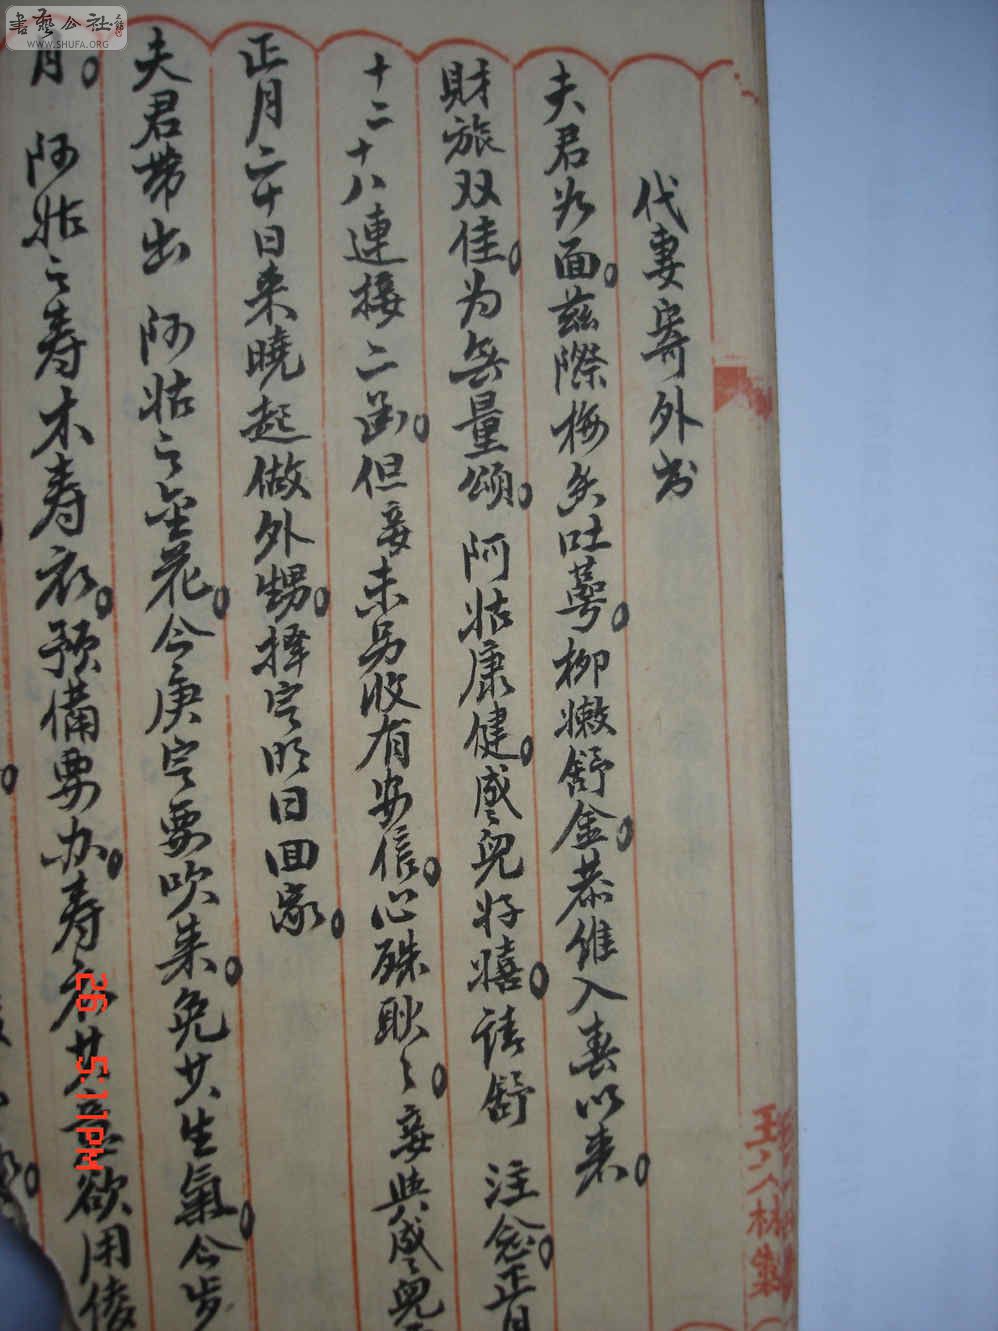 代妻寄外书
夫君为面。兹際梅矣吐萼。柳嫩舒金。恭维入春以来。
財旅双佳。为無量頌。阿姑康健。盛兒好嬉。請舒 注念。正月
十二十八連接二函。但妾未另收有安信。心殊耿々。妾與盛兒
正月二十日来曉起做外甥。擇定明日回家。
夫君带出 阿姑之金花。今庚定要吹来。免其生氣。今步
月。阿姑之寿木寿衣。預備要办。寿衣其意欲用倭
書藝公社
WWW.SHUFA.ORG
26 5:11PM